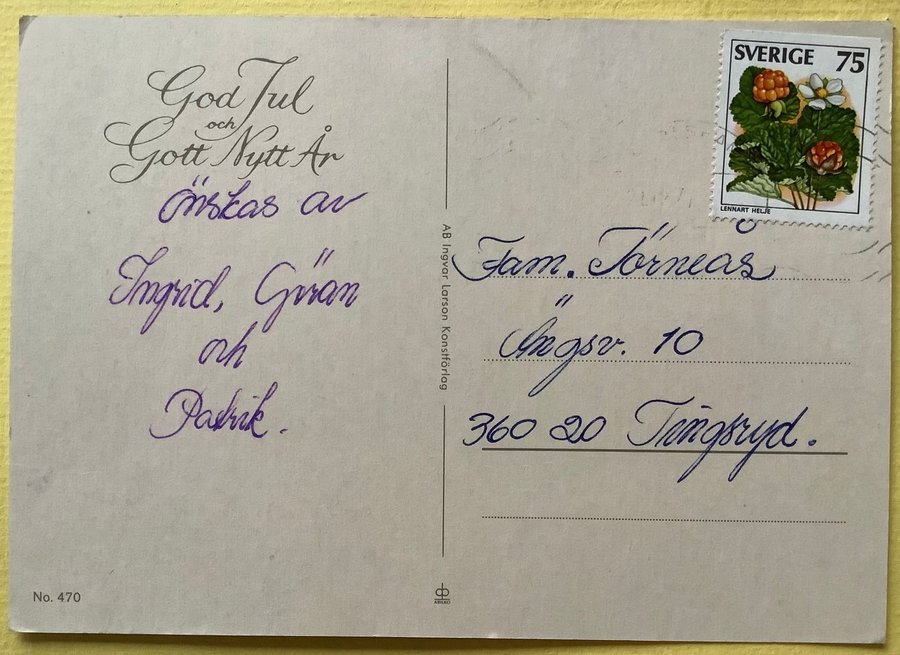 God Jul
och
Gott Nytt År
önskas av
Ingrid, Göran
och
Patrik.
No. 470
AB Ingvar Larson Konstförlag
ABILKO
SVERIGE 75
LENNART HELJE
Fam. Törneås
Ängsv. 10
360 20 Tingsryd.